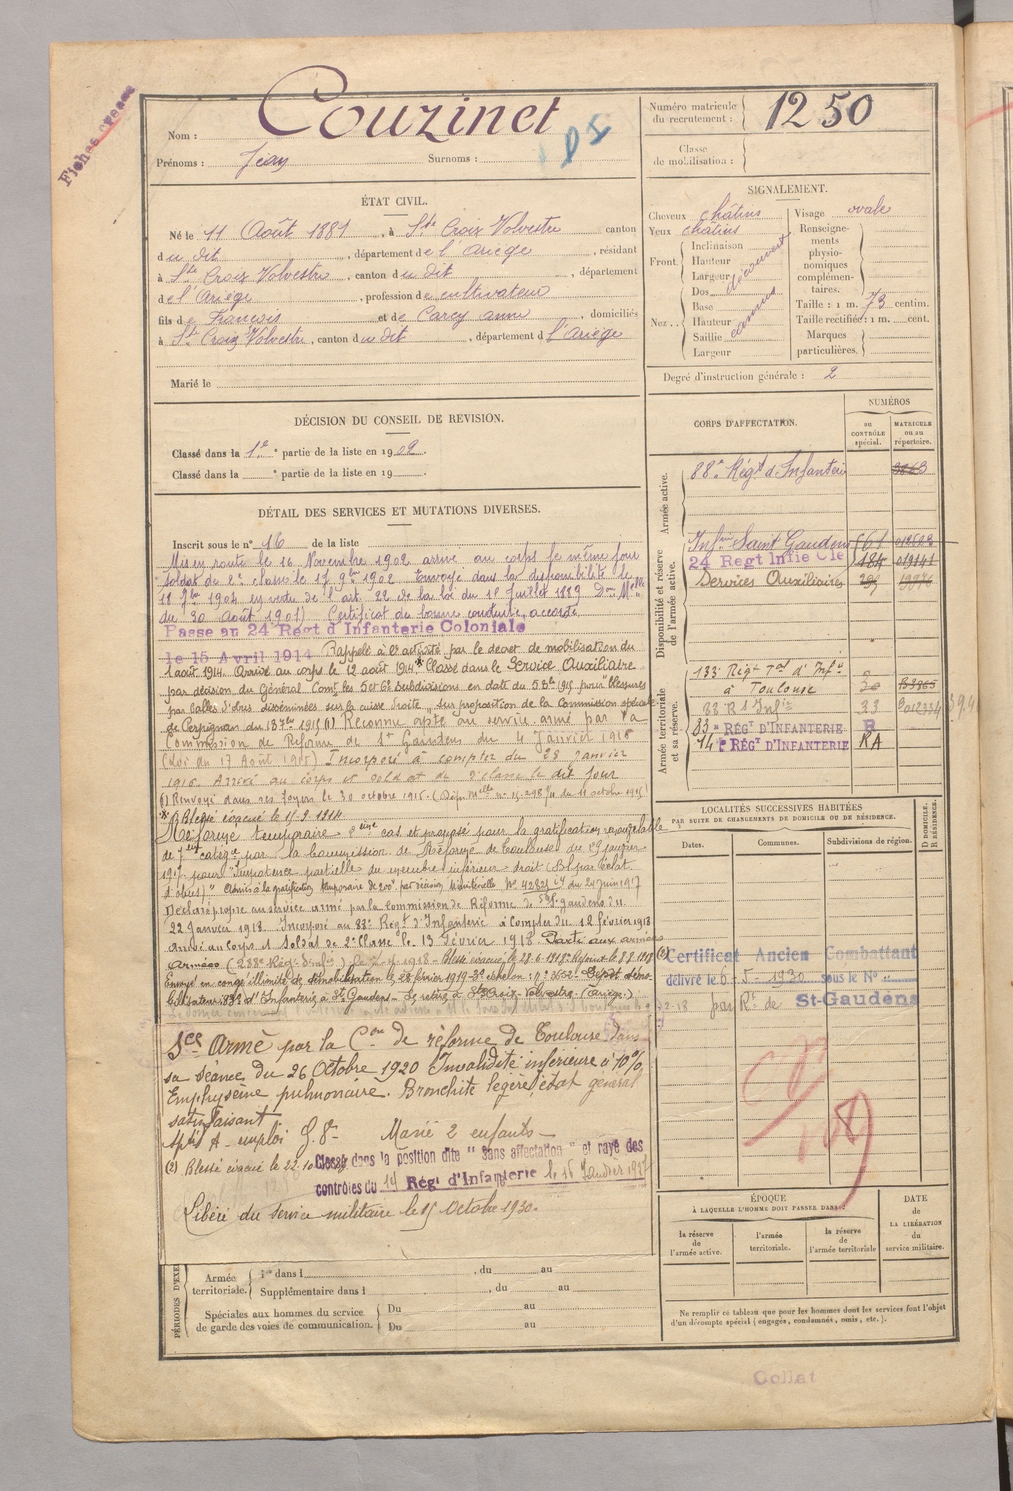 Fiches
Nom : Couzinet
Prénoms : Jean Surnoms :
Numéro matricule du recrutement : 1250
Classe de mobilisation :
ÉTAT CIVIL.
Né le 11 Août 1881, à Ste Croix Volvestre canton
du dit, département de l'Ariège, résidant
à Ste Croix Volvestre, canton du dit, département
de l'Ariège, profession de cultivateur
fils de François et de Carcy anne, domiciliés
à Ste Croix Volvestre, canton du dit, département d l'ariège
Marié le
SIGNALEMENT.
Cheveux châtins Visage ovale
Yeux châtins
Front. Inclinaison Hauteur Largeur découvert
Nez.. Dos Base Hauteur Saillie Largeur camus
Renseignements physionomiques complémentaires.
Taille : 1 m. 73 centim.
Taille rectifiée : 1 m. cent.
Marques particulières.
Degré d'instruction générale : 2
DÉCISION DU CONSEIL DE REVISION.
Classé dans la 1e partie de la liste en 1902.
Classé dans la e partie de la liste en 19
DÉTAIL DES SERVICES ET MUTATIONS DIVERSES.
Inscrit sous le n° 16 de la liste
Mis en route le 16 Novembre 1902 arrivé au corps le même jour
soldat de 2e classe le 17 9bre 1902 Envoyé dans la disponibilité le
18 9bre 1904 en vertu de l'art. 22 de la loi du 15 Juillet 1889 Don Mlle
du 30 Août 1901) Certificat de bonne conduite, accordé
Passé au 24 Régt d'Infanterie Coloniale
le 15 Avril 1914 Rappelé à l'activité par le décret de mobilisation du
1 août 1914. Arrivé au corps le 12 août 1914 * Classé dans le Service Auxiliaire
par décision du Général Comt les 5 et 6e Subdivisions en date du 5 8bre 1915 pour "blessures
par balles d'obus disséminées sur la cuisse droite" sur proposition de la Commission spéciale
de Perpignan du 18 7bre 1915 (1) Reconnu apte au service armé par la
Commission de Réforme de St Gaudens du 4 Janvier 1916
(Loi du 17 Août 1915) Incorporé à compter du 28 janvier
1916. Arrivé au corps et soldat de 2e classe le dit jour
(1) Renvoyé dans ses foyers le 30 octobre 1915.
* Blessé évacué le 15.9.1914
Réformé temporaire 2ème cas et proposé pour la gratification renouvelable
de 7me catégie par la Commission de Réforme de Toulouse du 29 janvier
1917 pour "Impotence partielle du membre inférieur droit (Bl. par éclat
d'obus)" Admis à la gratification temporaire de 200f par décision Ministérielle N° 42821 du 21 juin 1917
Déclaré propre au service armé par la Commission de Réforme de St gaudens du
22 Janvier 1918. Incorporé au 88e Régt d'Infanterie à Compter du 12 février 1918
arrivé au Corps et Soldat de 2e Classe le 13 Février 1918. Parti aux armées
Blessé évacué le 28-6-1918.
Envoyé en congé illimité de démobilisation le 28 février 1919 3e échelon Dépôt démo-
bilisateur 83e d'Infanterie à St Gaudens - Se retire à Ste Croix Volvestre. (Ariège.)
Sce Armé par la Con de réforme de Toulouse dans
sa séance du 26 Octobre 1920 Invalidité inférieure à 10%,
Emphysème pulmonaire. Bronchite légère, état général
satisfaisant
Marié 2 enfants
(2) Blessé évacué le 22.10
Classé dans la position dite "sans affectation" et rayé des
contrôles du 14 Régt d'Infanterie le 16 Janvier 1927
Libéré du service militaire le 15 Octobre 1930.
CORPS D'AFFECTATION.
NUMÉROS
au CONTRÔLE spécial. MATRICULE ou au répertoire.
Armée active.
88e Régt d'Infanterie
Disponibilité et réserve de l'armée active.
Infrie Saint Gaudens
24 Regt Infie Cle 184
Services Auxiliaires
Armée territoriale et sa réserve.
133e Régt Tal d'Infie
à Toulouse
88 RI Infie 33
83e RÉGT D'INFANTERIE
14e RÉGT D'INFANTERIE KA
LOCALITÉS SUCCESSIVES HABITÉES
PAR SUITE DE CHANGEMENTS DE DOMICILE OU DE RÉSIDENCE.
Dates. Communes. Subdivisions de région. D DOMICILE. R RÉSIDENCE.
Certificat Ancien Combattant
délivré le 6-5-1930 sous le N°
par Rt de St-Gaudens
ÉPOQUE
À LAQUELLE L'HOMME DOIT PASSER DANS :
la réserve de l'armée active. l'armée territoriale. la réserve de l'armée territoriale
DATE de LA LIBÉRATION du service militaire.
PÉRIODES D'EXE
Armée territoriale. 1re dans l , du au
Supplémentaire dans l , du au
Spéciales aux hommes du service de garde des voies de communication. Du au
Du au
Ne remplir ce tableau que pour les hommes dont les services font l'objet
d'un décompte spécial (engagés, condamnés, omis, etc.).
Collat